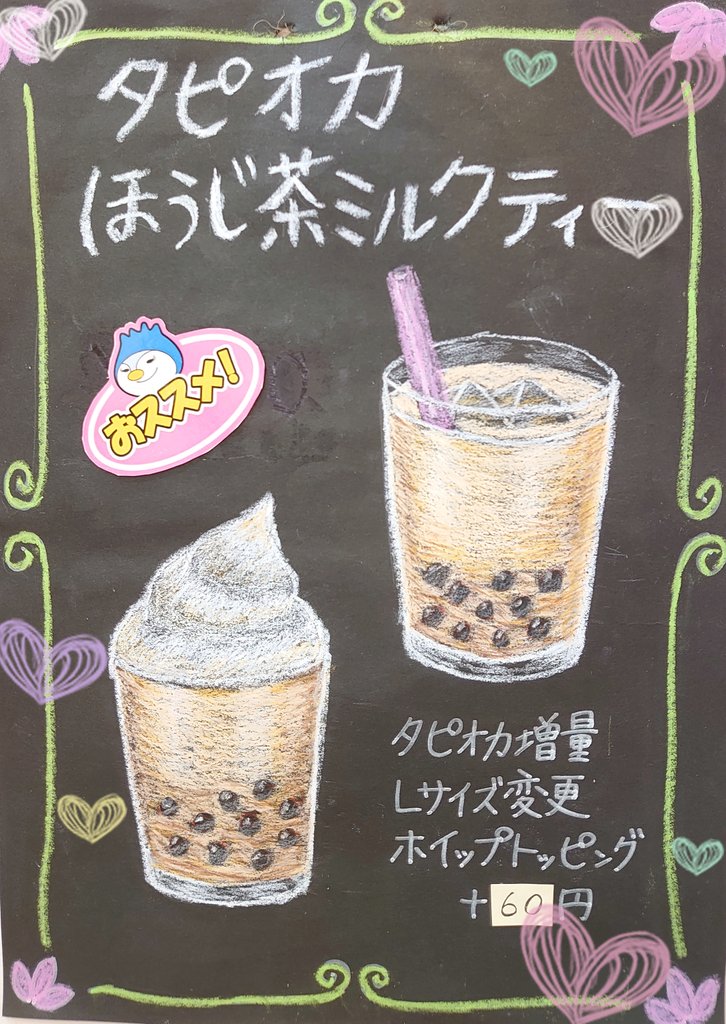 タピオカ
ほうじ茶ミルクティー
おススメ!
タピオカ増量
Lサイズ変更
ホイップトッピング
+60円